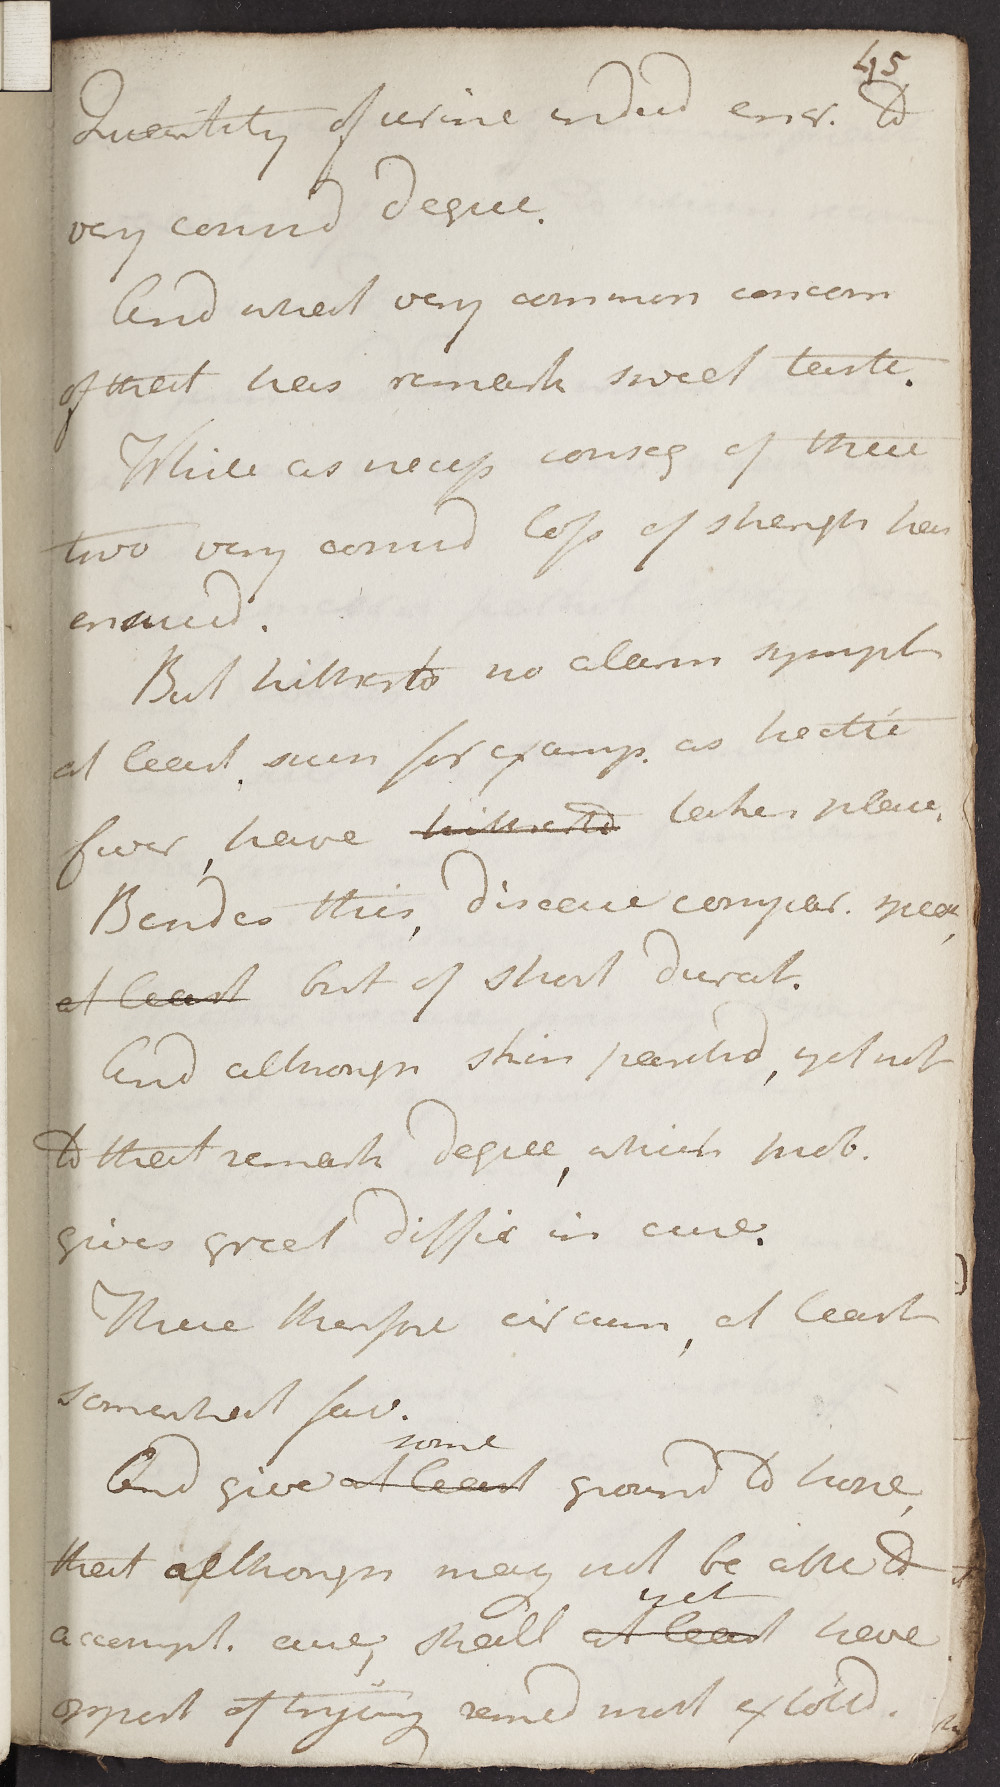 45
Quantity of urine indeed encr. to
very considd degree.
And what very common concom
of that has remark sweet taste.
While as necess conseq of these
two very considd loss of strength has
ensued.
But hitherto no alarm sympt
at least, such for examp. as hectic
fever, have hitherto taken place.
Besides this, disease compar. speak,
at least but of short durat.
And although skin parchd, yet not
to that remark degree, which prob.
gives great diffic in cure.
These therefore circum, at least
somewhat fav.
some
And give at least ground to hope,
that although may not be able to
yet
accompl. cure, shall at least have
opport of trying remed most extolld.